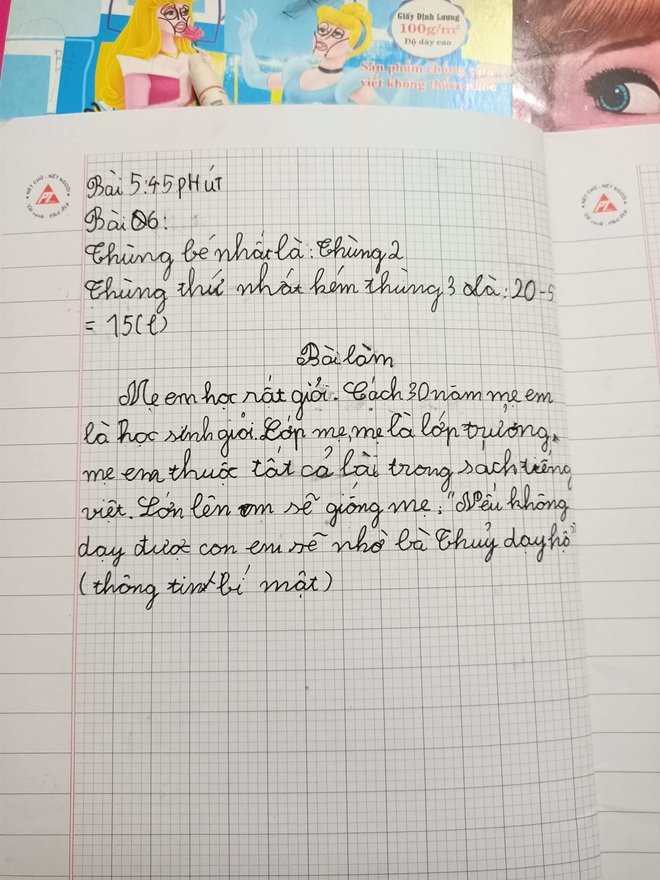 Giấy Định Lượng
100g/m²
Độ dày cao
Sản phẩm chống
viết không
NÉT CHỮ - NẾT NGƯỜI
Bài 5:45 pHút
Bài 06:
Thùng bé nhất là: Thùng 2
Thùng thứ nhất kém thùng 3 là: 20-5
= 15(l)
Bài làm
Mẹ em học rất giỏi. Cách 30 năm mẹ em
là học sinh giỏi. Lớp mẹ, mẹ là lớp trưởng,
mẹ em thuộc tất cả bài trong sách tiếng
việt. Lớn lên em sẽ giống mẹ: "Nếu không
dạy được con em sẽ nhờ bà Thuỷ dạy hộ"
(thông tin bí mật)